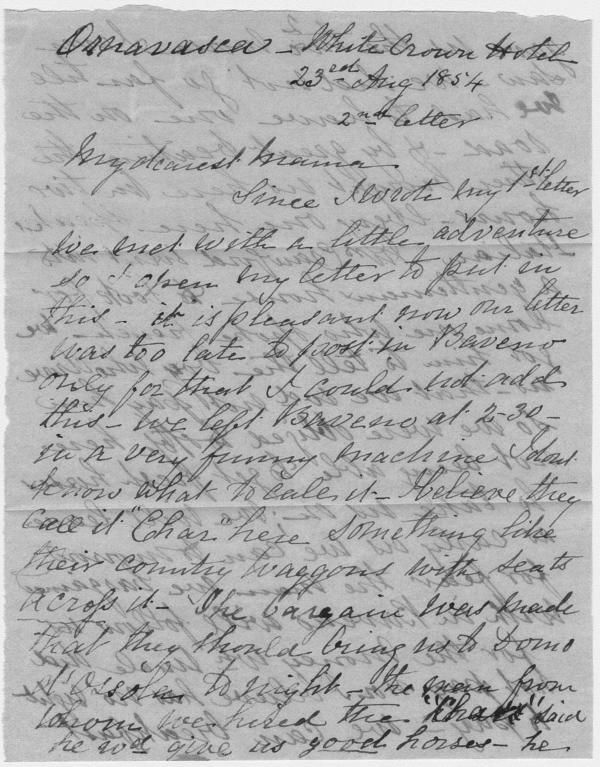 Ornavasca - White Crown Hotel
23rd Aug 1854
2nd letter
My dearest Mama
Since I wrote my 1st letter
we met with a little adventure
so I open my letter to put in
this - it is pleasant now our letter
was too late to post in Baveno
only for that I could not add
this - we left Baveno at 2-30 -
in a very funny machine I dont
know what to call it - I believe they
call it "Char" here something like
their country waggons with seats
across it - The bargain was made
that they should bring us to Domo
d'Ossola to night - the man from
whom we hired the "Char" said
he wod give us good horses - he